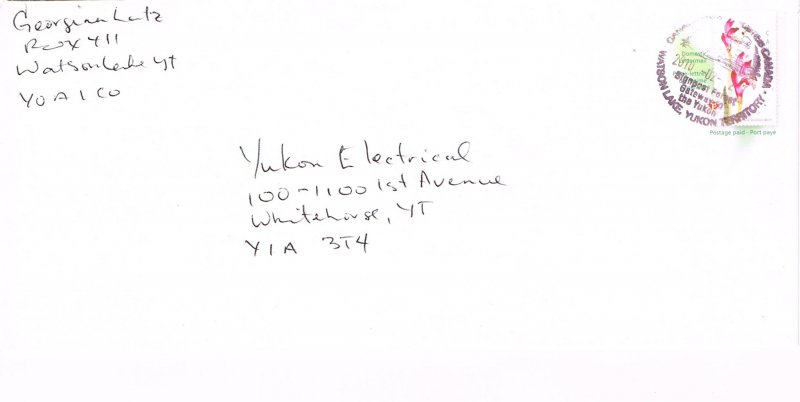 Georgina Lutz
Box 411
Watson Lake YT
Y0A 1C0
Yukon Electrical
100-1100 1st Avenue
Whitehorse, YT
Y1A 3T4
CANADA
WATSON LAKE, YUKON TERRITORY
2010
Signpost Forest
Gateway to
the Yukon
Domestic
Lettermail
Postage paid - Port payé